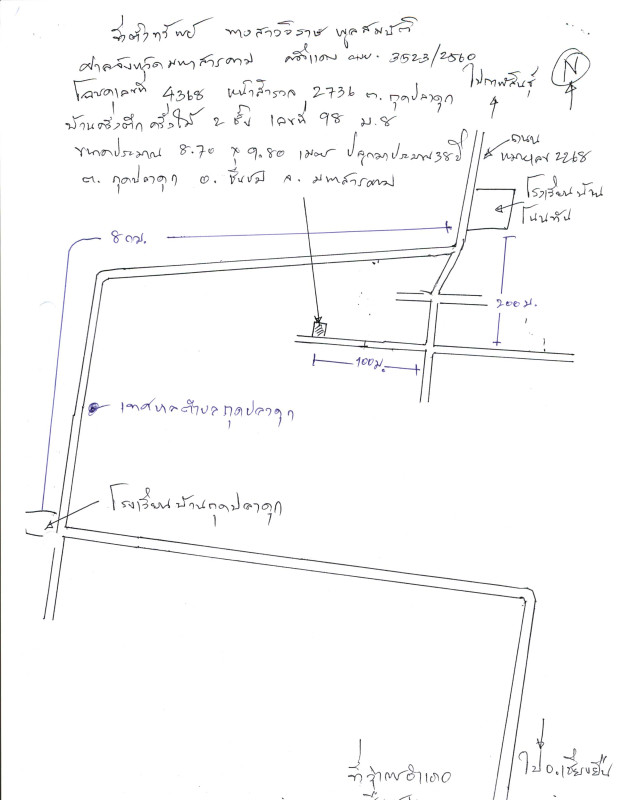 ที่ตั้งทรัพย์ นางสาววิราษ พูลสมบัติ
ศาลจังหวัดมหาสารคาม คดีแดง ผบ. 3523/2560
โฉนดเลขที่ 4368 หน้าสำรวจ 2736 ต. กุดปลาดุก
บ้านครึ่งตึกครึ่งไม้ 2 ชั้น เลขที่ 98 ม.8
ขนาดประมาณ 8.70 x 9.80 เมตร ปลูกมาประมาณ 38 ปี
ต. กุดปลาดุก อ. ชื่นชม จ. มหาสารคาม
ไปกาฬสินธุ์
N
ถนน
หมายเลข 2268
โรงเรียนบ้าน
โนนทัน
8 กม.
200 ม.
100 ม.
เทศบาลตำบลกุดปลาดุก
โรงเรียนบ้านกุดปลาดุก
ที่ว่าการอำเภอ
ไป อ.เชียงยืน